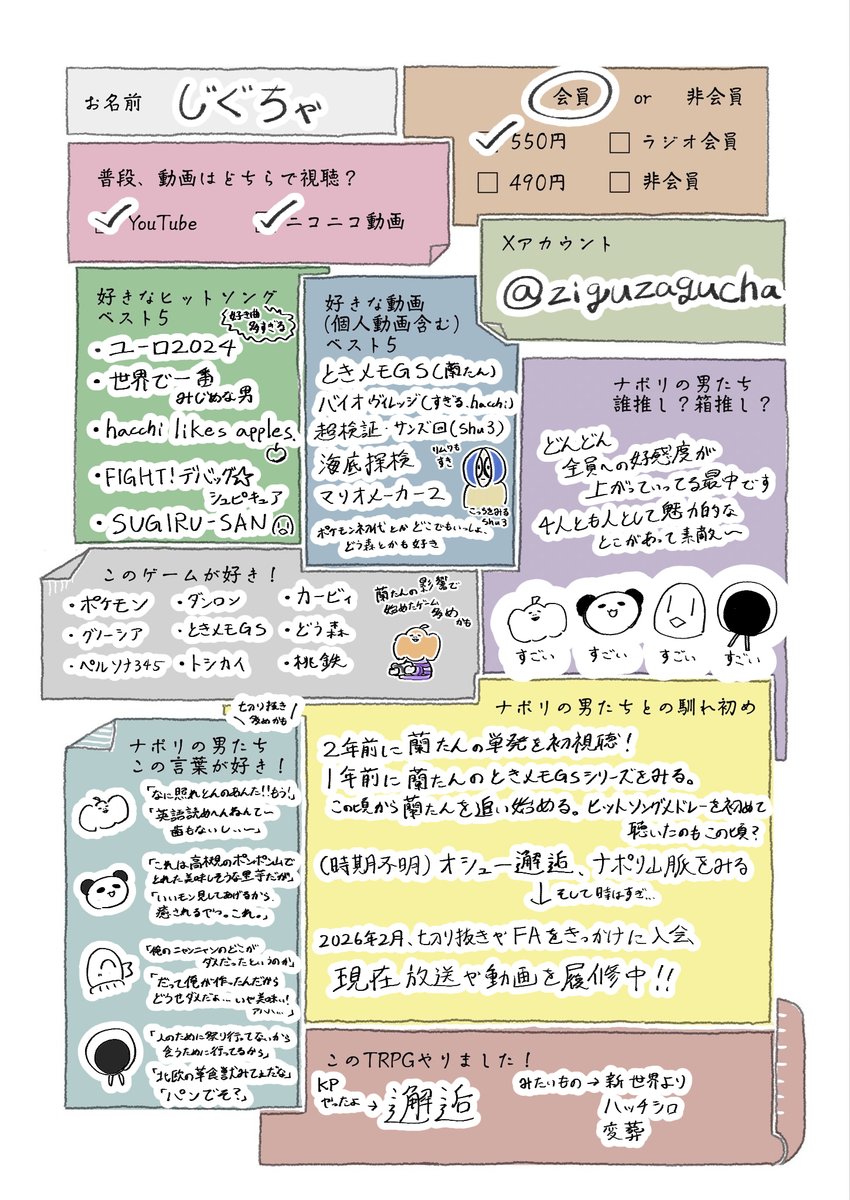 お名前 じぐちゃ
会員 or 非会員
550円 ラジオ会員
490円 非会員
普段、動画はどちらで視聴？
YouTube ニコニコ動画
Xアカウント
@ziguzagucha
好きなヒットソング
ベスト5
好き曲
多すぎる
・ユーロ2024
・世界で一番
みじめな男
・hacchi likes apples.
・FIGHT!デバッグ☆
シュピキュア
・SUGIRU-SAN
好きな動画
(個人動画含む)
ベスト5
ときメモGS(蘭たん)
バイオヴィレッジ(すぎる.hacchi)
超検証・サンズ回(shu3)
海底探検
リムワも
すき
マリオメーカー2
こっちをみる
shu3
ポケモン初代とか どこでもいっしょ、
どう森とかも好き
ナポリの男たち
誰推し？箱推し？
どんどん
全員への好感度が
上がっていってる最中です
4人とも人として魅力的な
とこがあって素敵〜
すごい すごい すごい すごい
このゲームが好き！
・ポケモン ・ダンロン ・カービィ
・グノーシア ・ときメモGS ・どう森
・ペルソナ345 ・トシカイ ・桃鉄
蘭たんの影響で
始めたゲーム
多め
かも
切り抜き
多めかも！
ナポリの男たち
この言葉が好き！
「なに照れとんのあんた!!もう!」
「英語読めへんねんて〜
歯もないし…〜」
「これは高枝見のポンポン山で
とれた美味しそうな里芋だが」
「いいモン見してあげるから、
癒されるでっ。これ。」
「俺のニャンニャンのどこが
ダメだったというのか」
「だって俺が作ったんだから
どうせダメだよ…いや美味い!
アハハ…」
「人のために祭り行ってないから
食うために行ってるから」
「北欧の草食獣みてぇだな」
「パンでぞ？」
ナポリの男たちとの馴れ初め
2年前に蘭たんの単発を初視聴！
1年前に蘭たんのときメモGSシリーズをみる。
この頃から蘭たんを追い始める。ヒットソングメドレーを初めて
聴いたのもこの頃？
(時期不明)オシュー邂逅、ナポリ山脈をみる
↓そして時はすぎ…
2026年2月、切り抜きやFAをきっかけに入会、
現在放送や動画を履修中!!
このTRPGやりました！
KP
やったよ→邂逅
みたいもの→新世界より
ハッチシロ
変葬